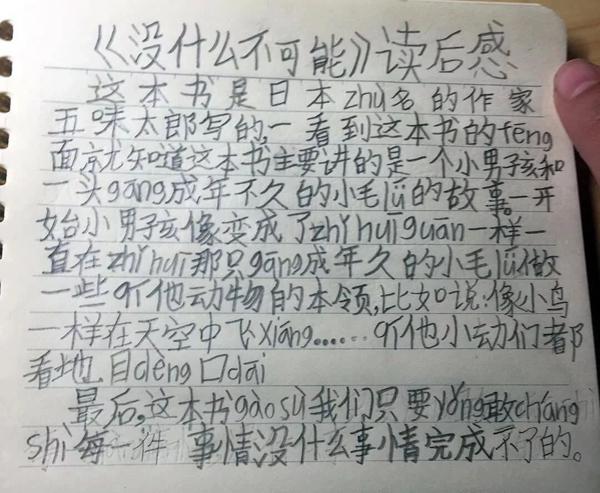 《没什么不可能》读后感
这本书是日本zhù名的作家
五味太郎写的,一看到这本书的fēng
面就知道这本书主要讲的是一个小男孩和
一头gāng成年不久的小毛lǘ的故事。一开
始小男孩像变成了zhǐ huī guān一样一
直在zhǐ huī那只gāng成年久的小毛lǘ做
一些其他动物的本领,比如说:像小鸟
一样在天空中飞xiáng......其他小动们都
看地目dèng口dāi
最后,这本书gào sù我们只要yǒng敢cháng
shì每一件 事情没什么事情完成不了的。